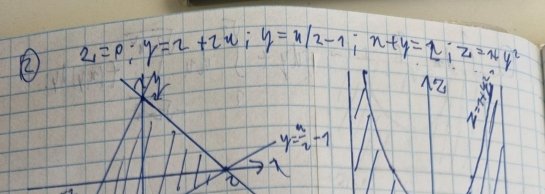 2
z=0; y=2+2x; y=x/2-1; x+y=2; z=x+y²
y
2
y=x/2-1
2
x
z
z=x+y²